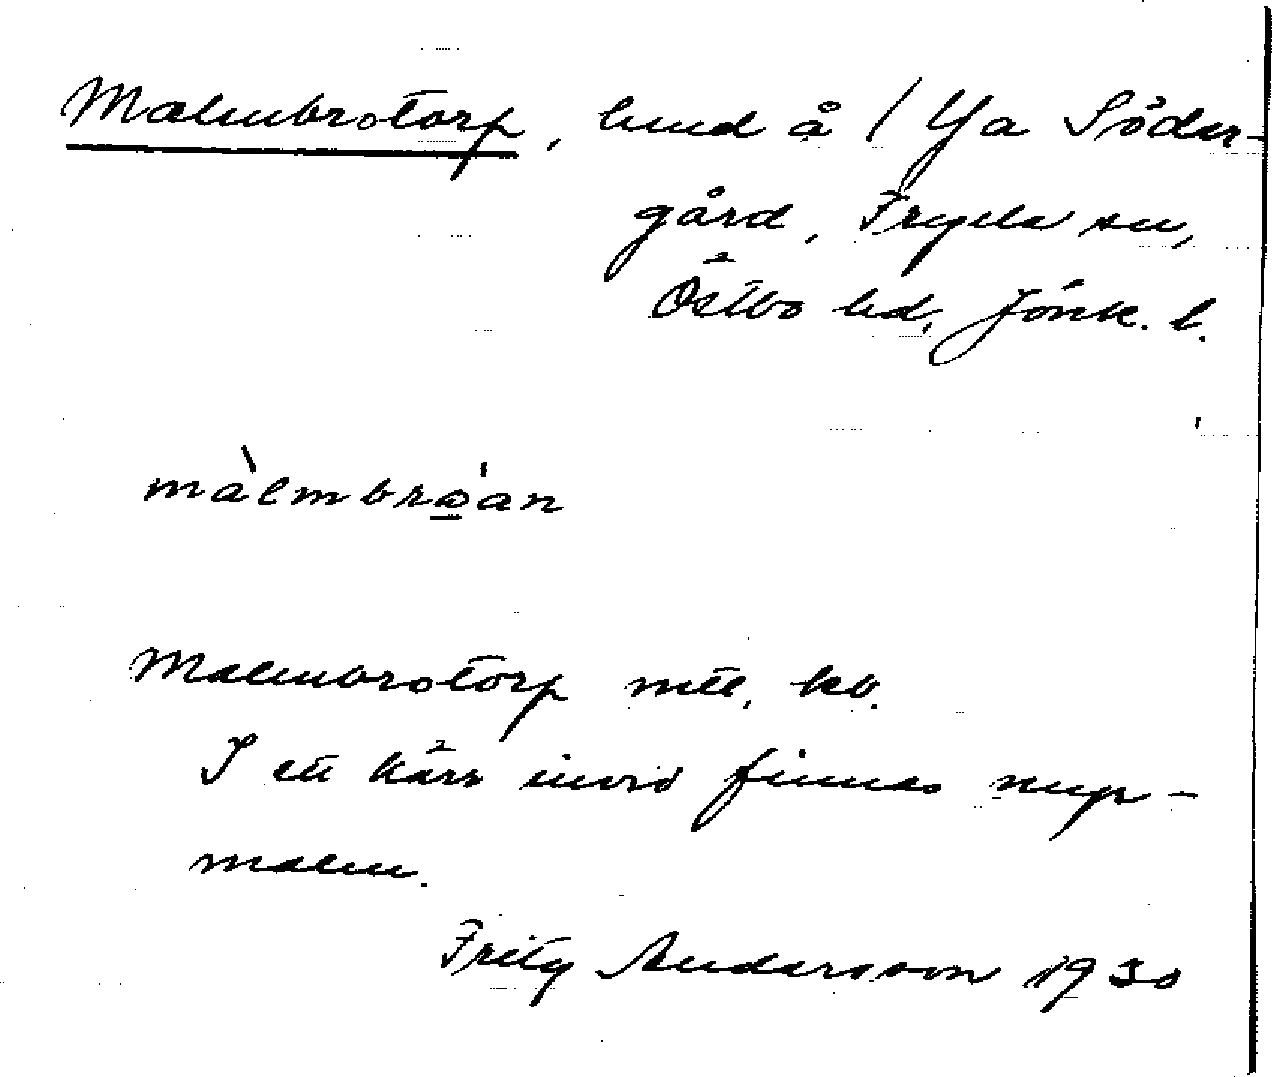 Malmbrotorp, lund å / Ya Söder-
gård, Fryele sn,
Östbo hd, Jönk. l.
màlmbro̱'an
Malmbrotorp mtl, kb.
I ett kärr invid finnes myr-
malm.
Fritz Andersson 1930